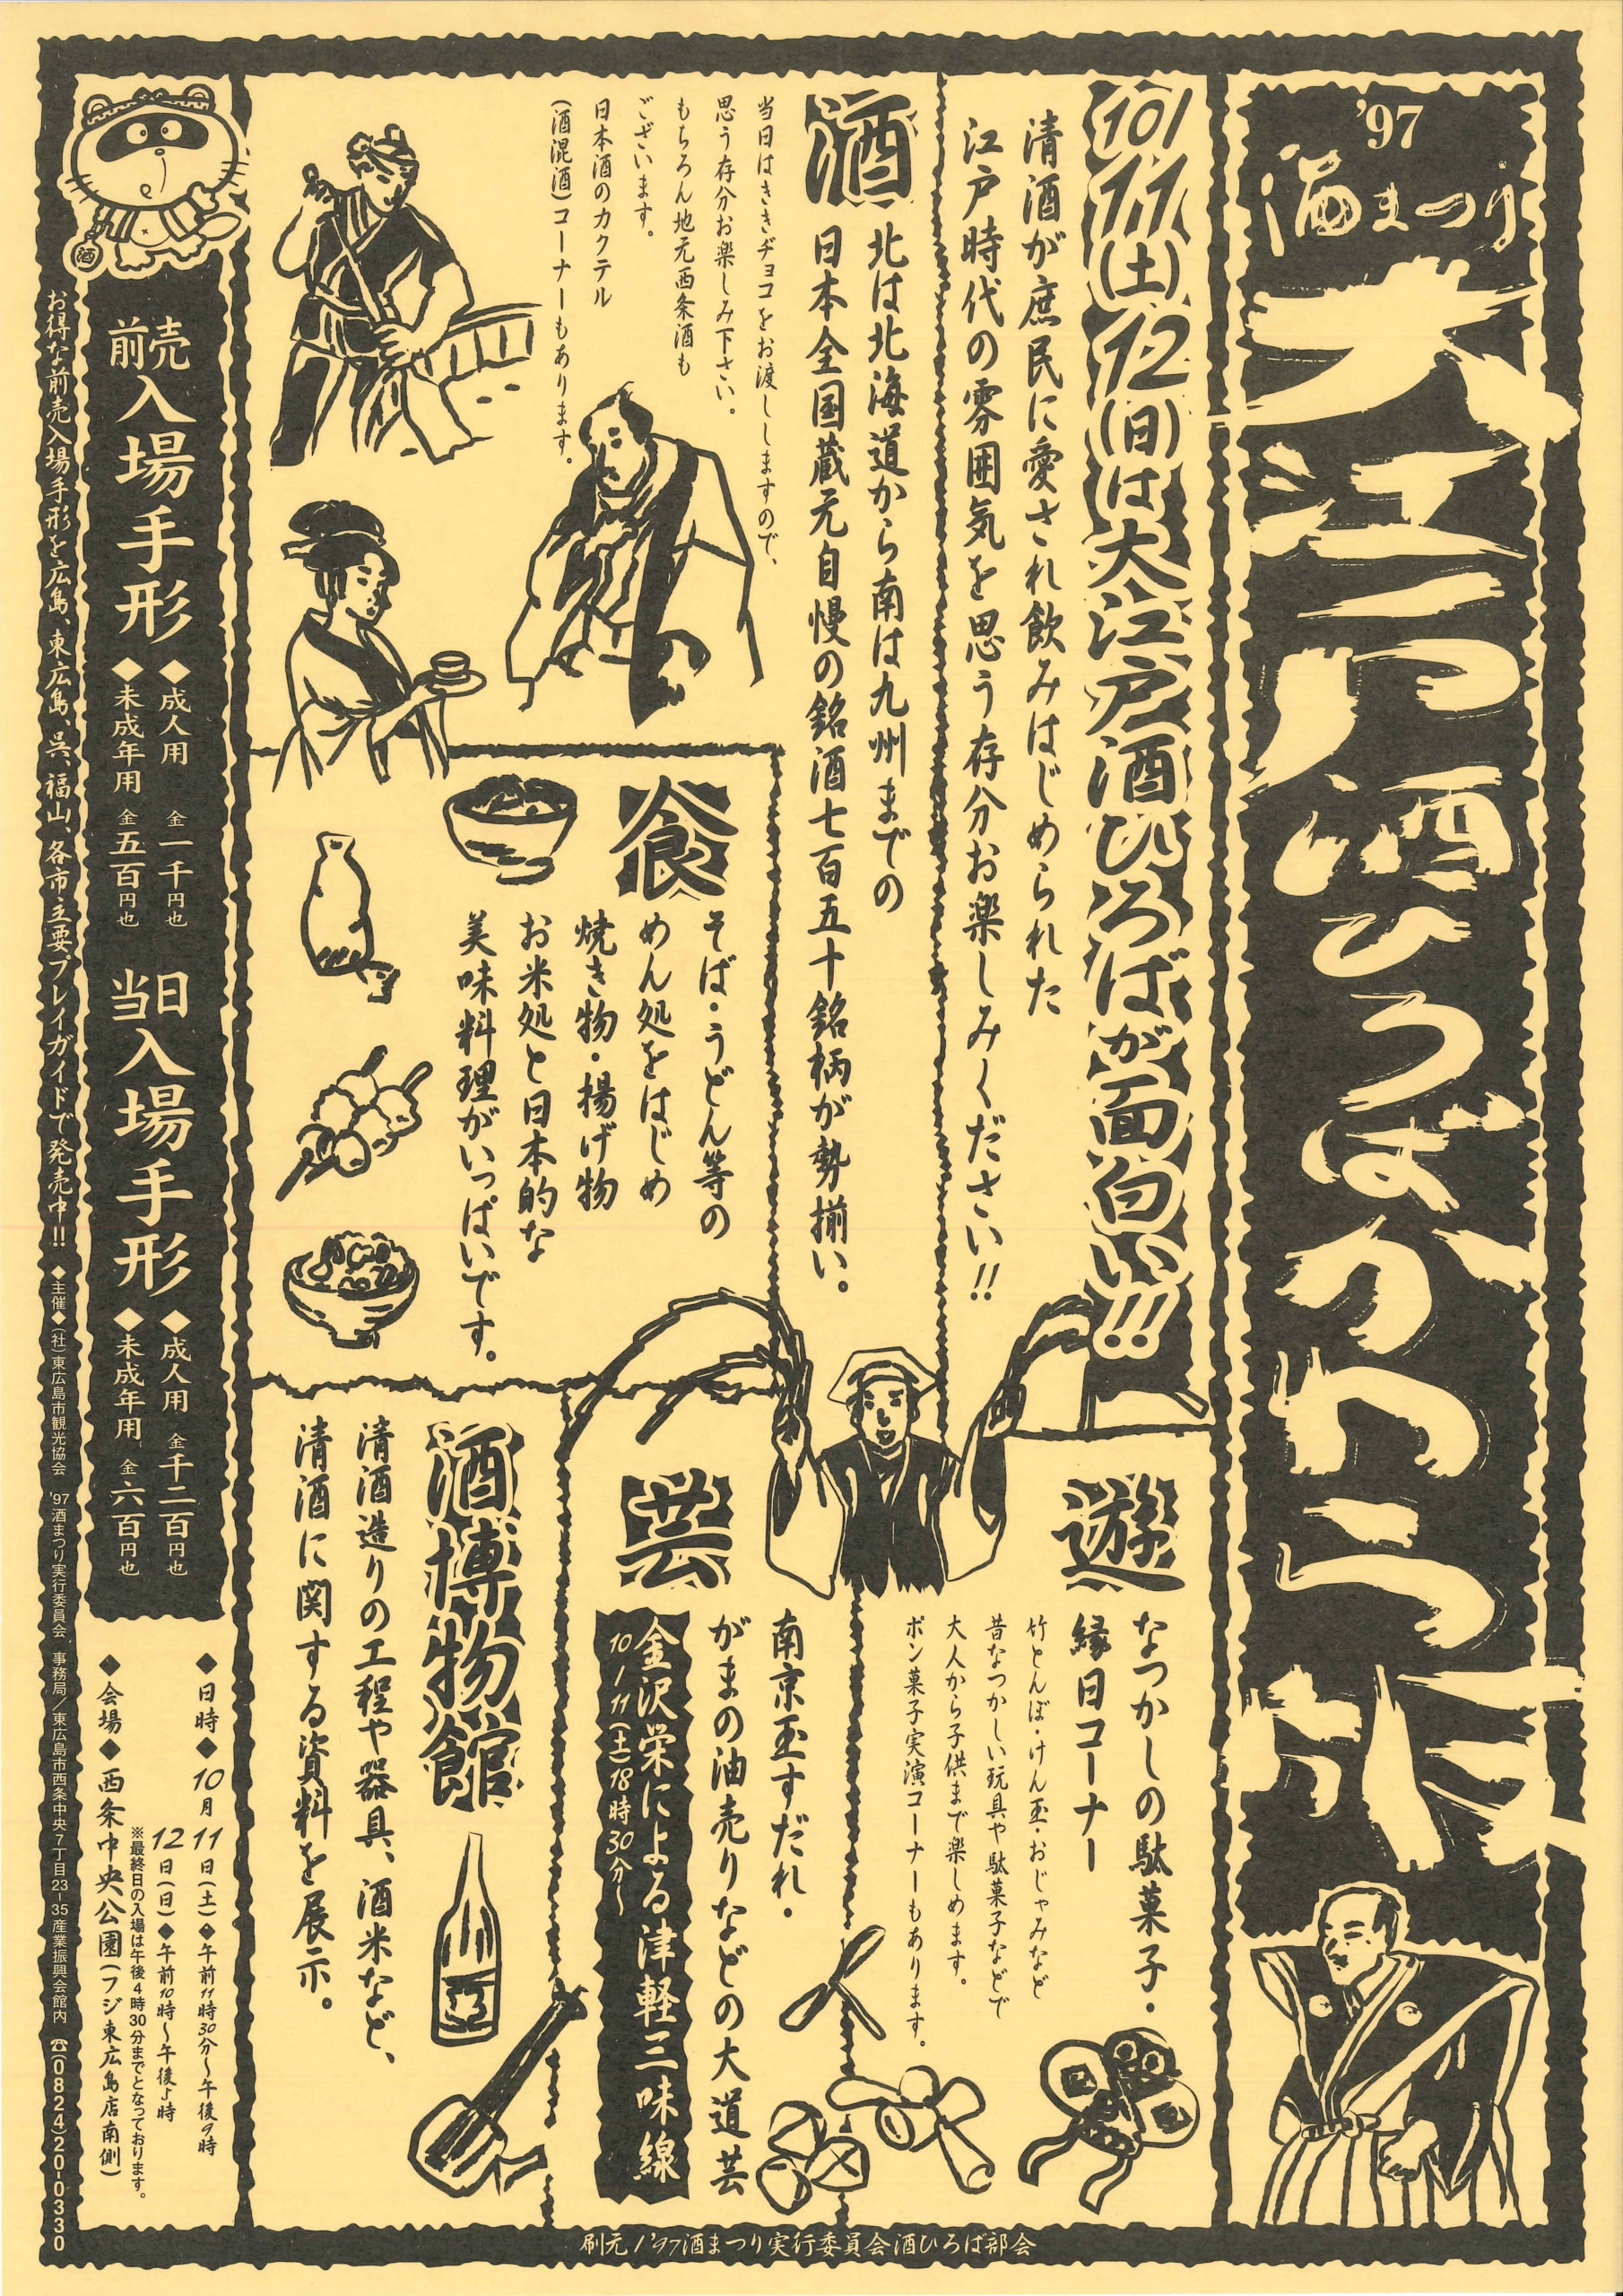 '97
酒まつり
大江戸酒ひろばかわら版
10/11(土)12(日)は大江戸酒ひろばが面白い!!
清酒が庶民に愛され飲みはじめられた
江戸時代の雰囲気を思う存分お楽しみください!!
酒
北は北海道から南は九州までの
日本全国蔵元自慢の銘酒七百五十銘柄が勢揃い。
当日はききヂョコをお渡ししますので、
思う存分お楽しみ下さい。
もちろん地元西条酒も
ございます。
日本酒のカクテル
(酒混酒)コーナーもあります。
食
そば・うどん等の
めん処をはじめ
焼き物・揚げ物
お米処と日本的な
美味料理がいっぱいです。
遊
なつかしの駄菓子・
縁日コーナー
竹とんぼ・けん玉・おじゃみなど
昔なつかしい玩具や駄菓子などで
大人から子供まで楽しめます。
ポン菓子実演コーナーもあります。
芸
南京玉すだれ・
がまの油売りなどの大道芸
金沢栄による津軽三味線
10/11(土)18時30分〜
酒博物館
清酒造りの工程や器具、酒米など、
清酒に関する資料を展示。
酒
前売入場手形
◆成人用 金一千円也
◆未成年用 金五百円也
当日入場手形
◆成人用 金千二百円也
◆未成年用 金六百円也
◆日時◆10月11日(土)◆午前11時30分〜午後9時
12日(日)◆午前10時〜午後5時
※最終日の入場は午後4時30分までとなっております。
◆会場◆西条中央公園(フジ東広島店南側)
お得な前売入場手形を広島、東広島、呉、福山、各市主要プレイガイドで発売中!!
◆主催◆(社)東広島市観光協会 '97酒まつり実行委員会 事務局/東広島市西条中央7丁目23-35産業振興会館内 ☎(0824)20-0330
刷元/'97酒まつり実行委員会酒ひろば部会